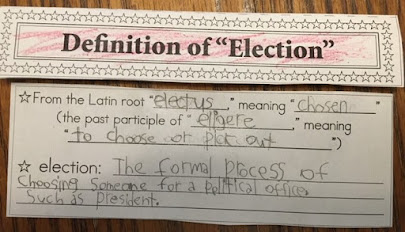 Definition of "Election"
☆ From the Latin root "electus," meaning "chosen"
(the past participle of "eligere," meaning
"to choose or pick out")
☆ election: The formal process of
Choosing Someone for a political office,
Such as president.